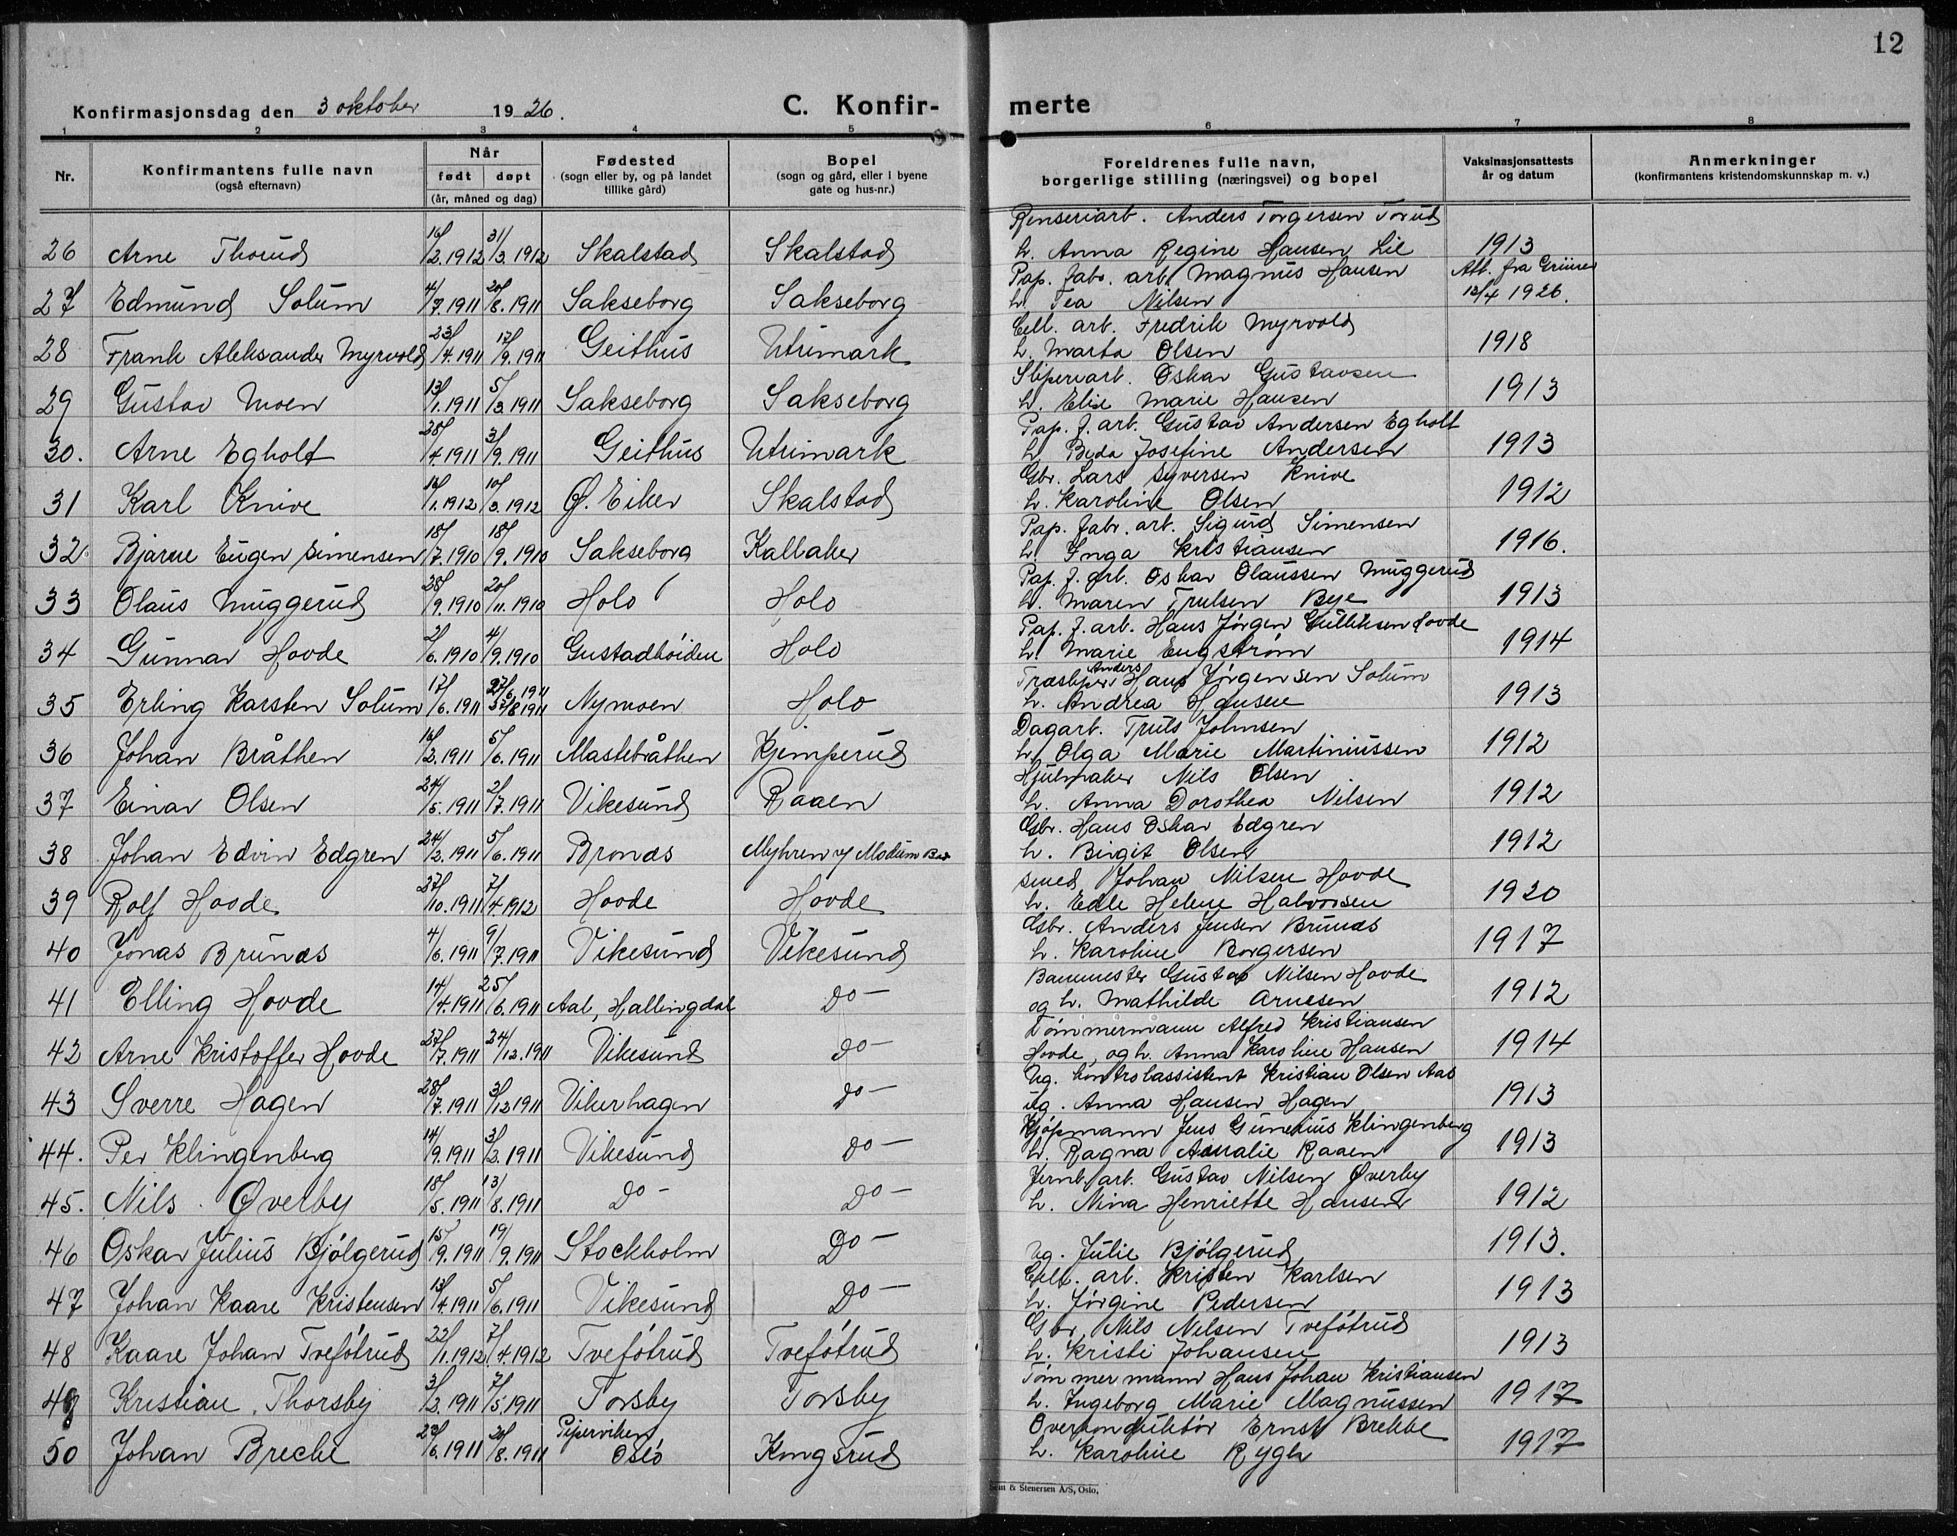 12
Konfirmasjonsdag den 3 oktober 1926.
C. Konfir-
merte
1 2 3 4 5 6 7 8
Nr. Konfirmantens fulle navn (også efternavn) Når født døpt (år, måned og dag) Fødested (sogn eller by, og på landet tillike gård) Bopel (sogn og gård, eller i byene gate og hus-nr.) Foreldrenes fulle navn, borgerlige stilling (næringsvei) og bopel Vaksinasjonsattests år og datum Anmerkninger (konfirmantens kristendomskunnskap m. v.)
Renseriarb. Anders Torgersen Torud
26 Arne Thorud 16/2.1912 31/3.1912 Skalstad Skalstad h. Anna Regine Hansen Lie 1913
Pap. fabr. arb. Magnus Hansen Att. fra
27 Edmund Solum 4/7.1911 20/8.1911 Sakseborg Sakseborg h. Tea Nilsen 12/4 1926.
Cell. arb. Fredrik Myrvold
28 Frank Aleksander Myrvold 23/4.1911 17/9.1911 Geithus Utrimark h. Marta Olsen 1918
Sliperiarb. Oskar Gustavsen
29 Gustav Moen 13/1.1911 5/3.1911 Sakseborg Sakseborg h. Elise Marie Hansen 1913
Pap. f. arb. Gustav Andersen Egholt
30. Arne Egholt 28/4.1911 3/9.1911 Geithus Utrimark h. Beda Josefine Andersen 1913
Gbr. Lars Syversen Knive
31 Karl Knive 16/1.1912 10/3.1912 Ø. Eiker Skalstad h. Karoline Olsen 1912
Pap. fabr. arb. Sigurd Simensen
32. Bjarne Eugen Simensen 18/7.1910 18/9.1910 Sakseborg Kallaker h. Inga Kristiansen 1916.
Pap. f. arb. Oskar Olaussen Muggerud
33 Olaus Muggerud 28/9.1910 20/11.1910 Holo Holo h. Maren Trulsen Bye 1913
Pap. f. arb. Hans Jørgen Gulliksen Hovde
34 Gunnar Hovde 2/6.1910 4/9.1910 Gustadhöiden Holo h. Marie Engström 1914
Træsliper Anders Hans Jörgensen Solum
35 Erling Karsten Solum 17/6.1911 27/8 1911 Nymoen Holo h. Andrea Hansen 1913
Dagarb. Truls Johnsen
36 Johan Bråthen 16/2.1911 5/6.1911 Mastebråthen Kjemperud h. Olga Marie Martiniussen 1912
Hjulmaker Nils Olsen
37 Einar Olsen 24/5.1911 2/7.1911 Vikesund Raaen h. Anna Dorothea Nilsen 1912
Gbr. Hans Oskar Edgren
38 Johan Edvin Edgren 24/2.1911 5/6.1911 Bronæs Myhren v/ Modum Bad h. Birgit Olsen 1912
Smed Johan Nilsen Hovde
39 Rolf Hovde 27/10.1911 7/4.1912 Hovde Hovde h. Edle Helene Halvorsen 1920
Gbr. Anders Jensen Brunæs
40 Jonas Brunæs 4/6.1911 9/7.1911 Vikesund Vikesund h. Karoline Borgersen 1917
Banemester Gustav Nilsen Hovde
41 Elling Hovde 14/4.1911 25/6.1911 Aal, Hallingdal Do – og h. Mathilde Arnesen 1912
Tömmermann Alfred Kristiansen
42 Arne Kristoffer Hovde 27/7.1911 24/12.1911 Vikesund Do – Hovde, og h. Anna Karoline Hansen 1914
Ug. kontrolassistent Kristian Olsen Aas
43 Sverre Hagen 28/7.1911 3/12 1911 Vikerhagen Do – ug. Anna Hansen Hagen 1913
Kjøpmann Jens Gunerius Klingenberg
44. Per Klingenberg 14/9.1911 3/2.1911 Vikesund Do – h. Ragna Amalie Raaen 1913
Jernb. arb. Gustav Nilsen Øverby
45. Nils Øverby 18/5.1911 13/8.1911 Do – Do – h. Nina Henriette Hansen 1912
46 Oskar Julius Bjölgerud 15/9.1911 19/9.1911 Stockholm Do – Ug. Julie Bjölgerud 1913.
Cell. arb. Kristen Karlsen
47 Johan Kaare Kristensen 13/4.1911 5/6.1911 Vikesund Do – h. Jörgine Pedersen 1913
Gbr. Nils Nilsen Tveförtrud
48 Kaare Johan Tvefötrud 22/1.1912 7/4.1912 Tvefötrud Tvefötrud h. Kristi Johansen 1913
Tömmermann Hans Johan Kristiansen
49 Kristian Thorsby 3/2.1911 7/5.1911 Torsby Torsby h. Ingeborg Marie Magnussen 1917
Overkonduktör Ernst Brekke
50 Johan Breche 23/6.1911 20/8.1911 Pipervihen Oslo Kongsrud h. Karoline Rygh 1917
Sem & Stenersen A/S, Oslo.